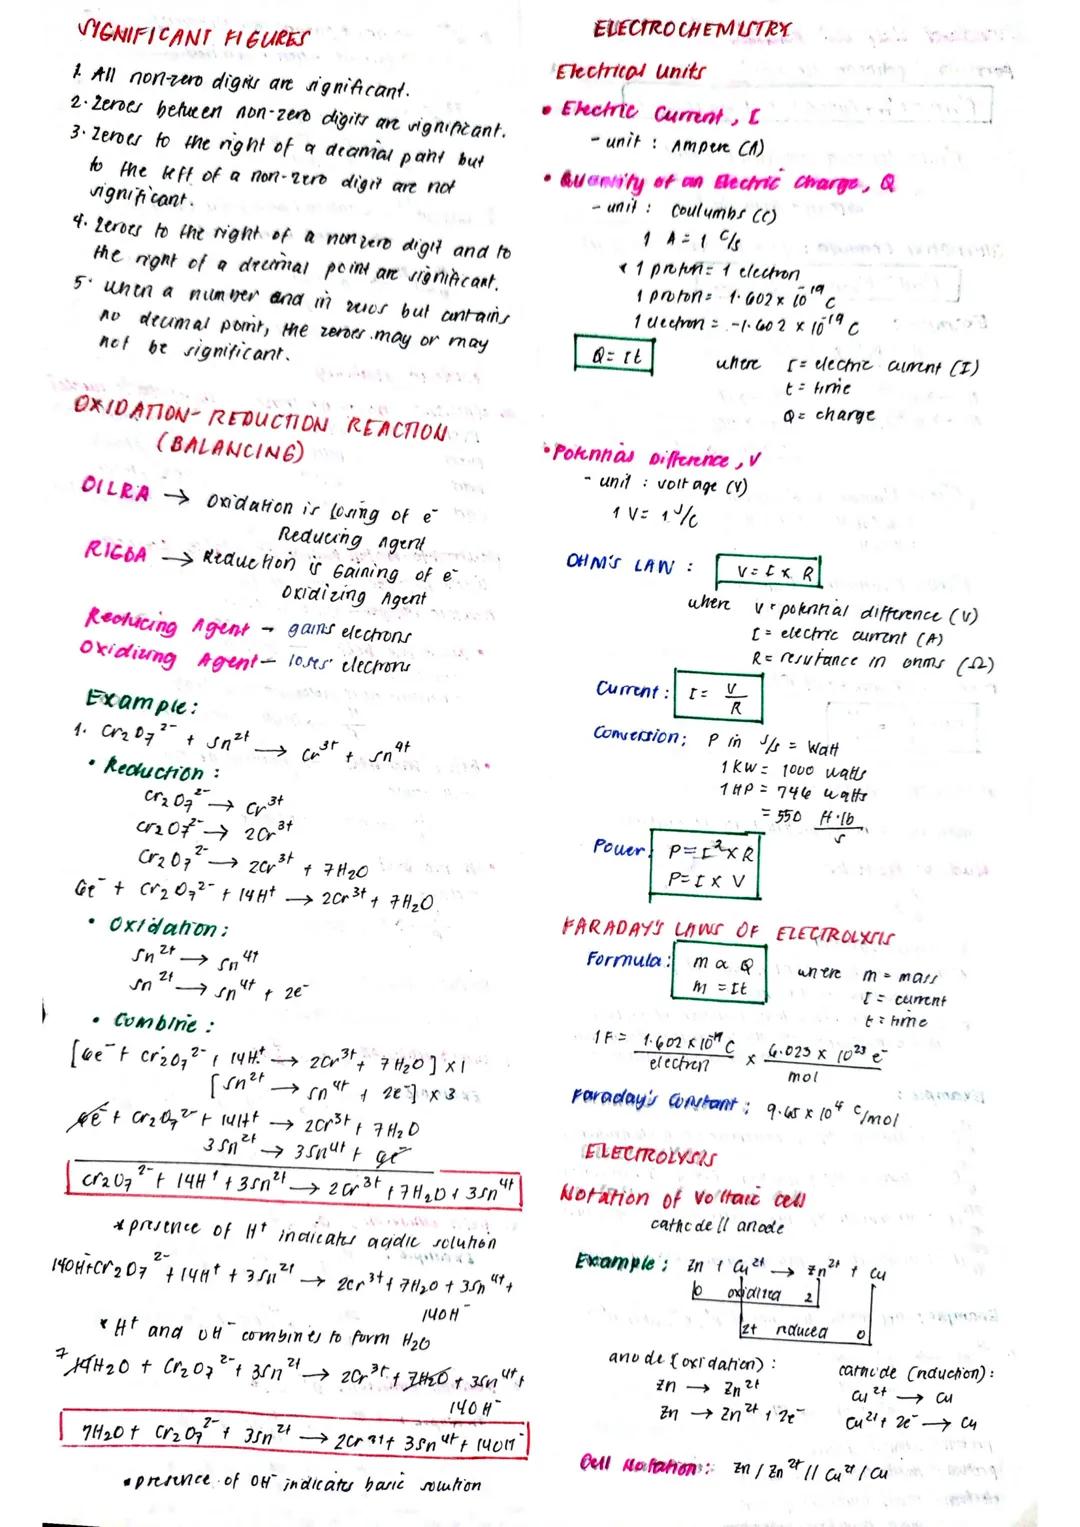 SIGNIFICANT FIGURES
1. All non-zero digits are significant.
2. Zeroes between non-zero digits are significant.
3. Zeroes to the right of a decimal point but
to the left of a non-zero digit are not
significant.
4. Zeroes to the right of a nonzero digit and to
the right of a decimal point are significant.
5. When a number end in zeros but contains
no decimal point, the zeroes may or may
not be significant.
OXIDATION-REDUCTION REACTION
(BALANCING)
OILRA → Oxidation is Losing of e⁻
Reducing Agent
RIGOA → Reduction is Gaining of e⁻
Oxidizing Agent
Reducing Agent - gains electrons
Oxidizing Agent - loses electrons
Example:
1. Cr₂O₇²⁻ + Sn²⁺ → Cr³⁺ + Sn⁴⁺
• Reduction:
Cr₂O₇²⁻ → Cr³⁺
Cr₂O₇²⁻ → 2Cr³⁺
Cr₂O₇²⁻ → 2Cr³⁺ + 7H₂O
6e⁻ + Cr₂O₇²⁻ + 14H⁺ → 2Cr³⁺ + 7H₂O
• Oxidation:
Sn²⁺ → Sn⁴⁺
Sn²⁺ → Sn⁴⁺ + 2e⁻
• Combine:
[6e⁻ + Cr₂O₇²⁻ + 14H⁺ → 2Cr³⁺ + 7H₂O] x 1
[Sn²⁺ → Sn⁴⁺ + 2e⁻] x 3
6e⁻ + Cr₂O₇²⁻ + 14H⁺ → 2Cr³⁺ + 7H₂O
3Sn²⁺ → 3Sn⁴⁺ + 6e⁻
Cr₂O₇²⁻ + 14H⁺ + 3Sn²⁺ → 2Cr³⁺ + 7H₂O + 3Sn⁴⁺
* presence of H⁺ indicates acidic solution
14OH⁻ + Cr₂O₇²⁻ + 14H⁺ + 3Sn²⁺ → 2Cr³⁺ + 7H₂O + 3Sn⁴⁺ +
14OH⁻
* H⁺ and OH⁻ combines to form H₂O
7 14H₂O + Cr₂O₇²⁻ + 3Sn²⁺ → 2Cr³⁺ + 7H₂O + 3Sn⁴⁺ +
14OH⁻
7H₂O + Cr₂O₇²⁻ + 3Sn²⁺ → 2Cr³⁺ + 3Sn⁴⁺ + 14OH⁻
* presence of OH⁻ indicates basic solution
ELECTROCHEMISTRY
Electrical Units
• Electric Current, I
- unit: Ampere (A)
• Quantity of an Electric Charge, Q
- unit: Coulumbs (C)
1 A = 1 C/s
* 1 proton = 1 electron
1 proton = 1.602 x 10⁻¹⁹ C
1 electron = -1.602 x 10⁻¹⁹ C
Q = It where I = electric current (I)
t = time
Q = charge
• Potential Difference, V
- unit: voltage (V)
1 V = 1 J/C
OHM'S LAW: V = I x R
where V = potential difference (V)
I = electric current (A)
R = resistance in ohms (Ω)
Current: I = V/R
Conversion: P in J/s = Watt
1 KW = 1000 watts
1 HP = 746 watts
= 550 ft·lb/s
Power: P = I² x R
P = I x V
FARADAY'S LAWS OF ELECTROLYSIS
Formula: m α Q where m = mass
m = It I = current
t = time
1 F = 1.602 x 10⁻¹⁹ C/electron x 6.023 x 10²³ e⁻/mol
Faraday's Constant: 9.65 x 10⁴ C/mol
ELECTROLYSIS
Notation of Voltaic cell
cathode || anode
Example: Zn + Cu²⁺ → Zn²⁺ + Cu
0 oxidized 2
2+ reduced 0
anode (oxidation): cathode (reduction):
Zn → Zn²⁺ Cu²⁺ → Cu
Zn → Zn²⁺ + 2e⁻ Cu²⁺ + 2e⁻ → Cu
Cell Notation: Zn / Zn²⁺ // Cu²⁺ / Cu